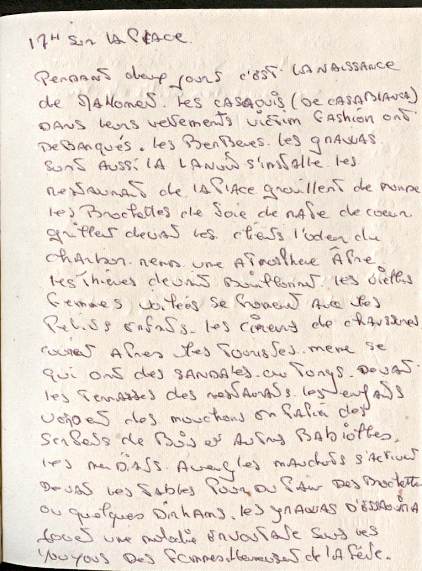 17H sur la Place
Pendant deux jours c'est la naissance
de Mahomet. Les CASAOUIS (de CASABLANCA)
dans leurs vetements victim fashion ont
Debarqués. les Berberes. les gnawas
sont aussi là la nuit s'installe les
restaurant de la Place grouillent de monde
les Brochettes de foie de rate de coeur
grillent devant les clients l'odeur du
charbon rend une atmosphere Acre
les thieres bouillonnent. les vieilles
femmes voilées se promenent avec les
Petits enfants. les cireurs de chaussures
courent Apres les touristes. meme se
qui ont des SANDALES ou Tongs. Devant
les terrasses des restaurants les enfants
vendent des mouchoirs en Papier des
Serpents de Bois et Autres Babiolles.
les mendiants. Aveugles manchots s'activent
Devant les tables Pour du Pain Des Brochettes
ou quelques Dirhams. les gnawas D'ESSAOUIRA
jouent une melodie envoutante sous les
Youyous Des femmes. Heureuses de la fête.